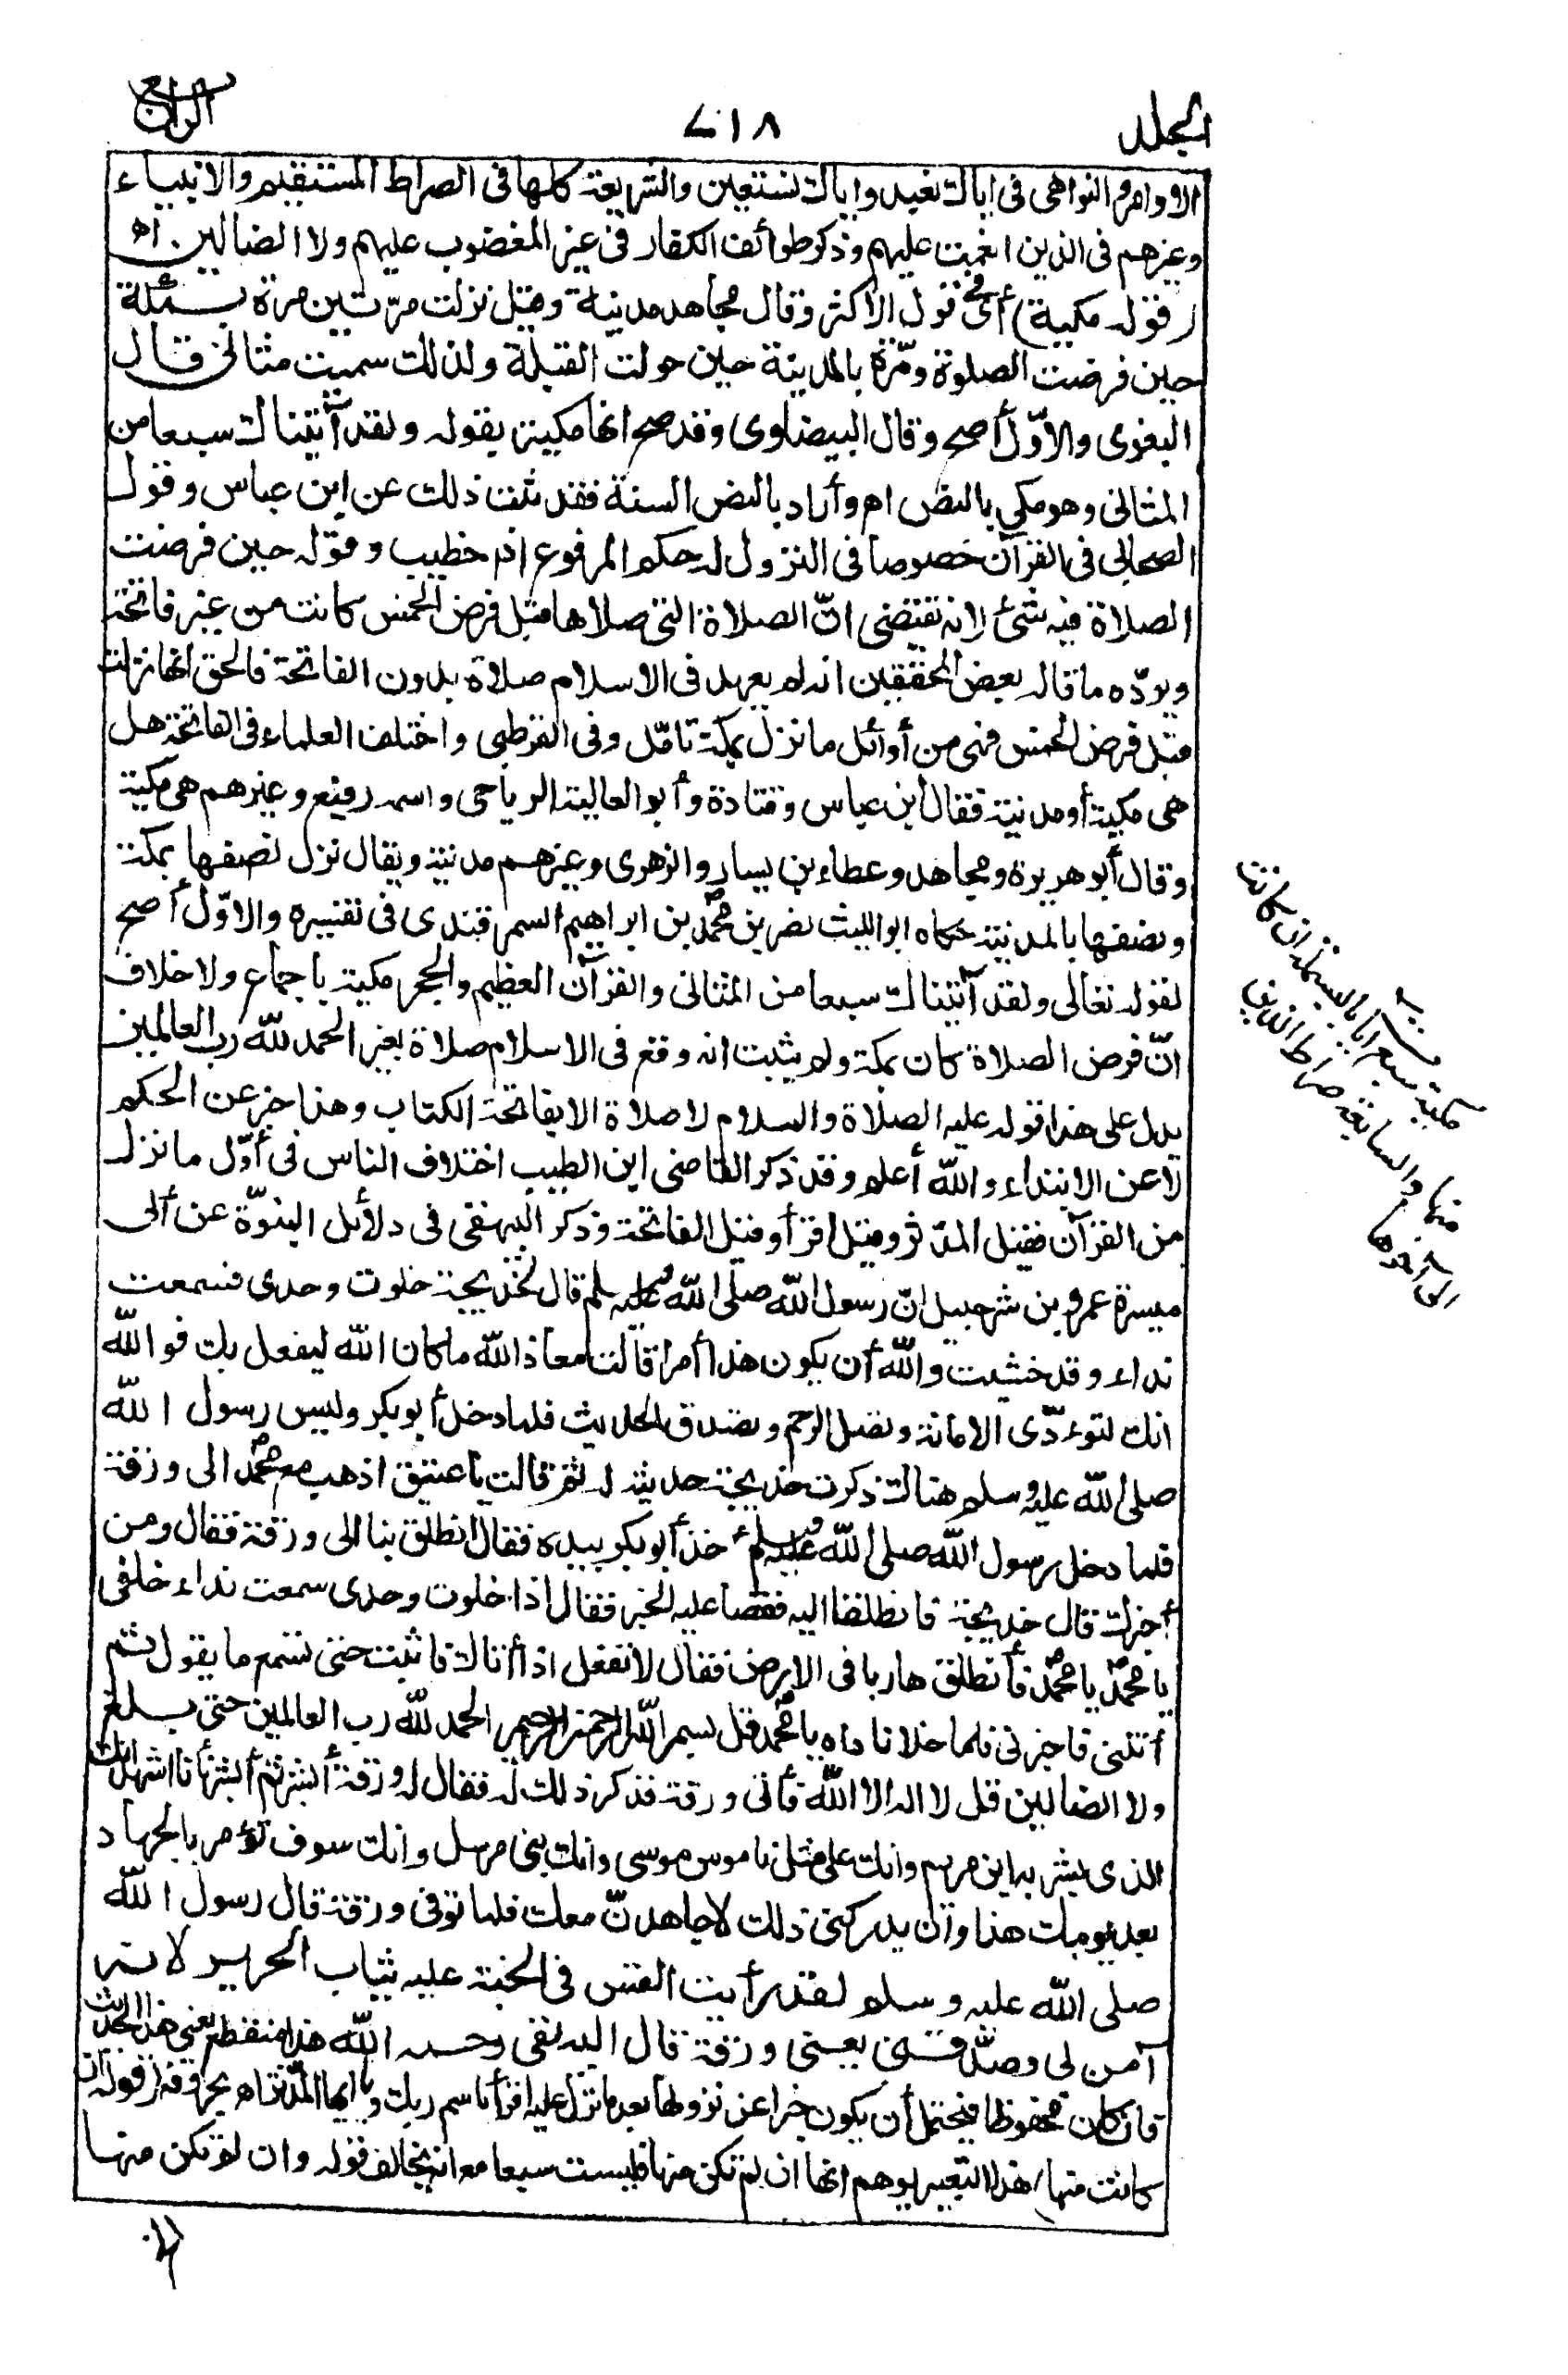 المجلد
٧١٨
الرابع
الاوامر والنواهى فى اياك نعبد واياك نستعين والشريعة كلها فى الصراط المستقيم والانبياء
وغيرهم فى الذين انعمت عليهم وذكر طوائف الكفار فى غير المغضوب عليهم ولا الضالين اه
(قوله مكية) أى فى قول الاكثر وقال مجاهد مدنية وقيل نزلت مرّتين مرة بمكة
حين فرضت الصلوة ومرّة بالمدينة حين حولت القبلة ولذلك سميت مثانى قال
البغوى والاوّل أصح وقال البيضاوى وقد صح انها مكية بقوله ولقد آتيناك سبعا من
المثانى وهو مكي بالنص اه وأراد بالنص السنة فقد ثبت ذلك عن ابن عباس وقول
الصحابى فى القرآن خصوصا فى النزول له حكم المرفوع اه خطيب وقوله حين فرضت
الصلاة فيه شئ لانه يقتضى انّ الصلاة التى صلاها قبل فرض الخمس كانت من غير فاتحة
ويردّه ما قاله بعض المحققين انه لم يعهد فى الاسلام صلاة بدون الفاتحة فالحق انها نزلت
قبل فرض الخمس فهى من أوائل ما نزل بمكة تامّل وفى القرطبى واختلف العلماء فى الفاتحة هل
هى مكية أو مدنية فقال ابن عباس وقتادة وأبو العالية الرياحى واسمه رفيع وغيرهم هى مكية
وقال أبو هريرة ومجاهد وعطاء بن يسار والزهرى وغيرهم مدنية ويقال نزل نصفها بمكة
ونصفها بالمدينة حكاه ابو الليث نصر بن محمد بن ابراهيم السمرقندى فى تفسيره والاوّل أصح
لقوله تعالى ولقد آتيناك سبعا من المثانى والقرآن العظيم والحجر مكية باجماع ولا خلاف
انّ فرض الصلاة كان بمكة ولم يثبت انه وقع فى الاسلام صلاة بغير الحمد لله رب العالمين
يدل على هذا قوله عليه الصلاة والسلام لا صلاة الا بفاتحة الكتاب وهذا خبر عن الحكم
لا عن الابتداء والله أعلم وقد ذكر القاضى ابن الطيب اختلاف الناس فى أوّل ما نزل
من القرآن فقيل المدّثر وقيل اقرأ وقيل الفاتحة وذكر البيهقى فى دلائل النبوّة عن أبى
ميسرة عمرو بن شرحبيل انّ رسول الله صلى الله عليه وسلم قال لخديجة خلوت وحدى فسمعت
نداء وقد خشيت والله أن يكون هذا أمرا قالت معاذ الله ما كان الله ليفعل بك فوالله
انك لتوءدّى الامانة وتصل الرحم وتصدق الحديث فلما دخل أبو بكر وليس رسول الله
صلى الله عليه وسلم هناك ذكرت خديجة حديثه له ثم قالت يا عتيق اذهب مع محمد الى ورقة
فلما دخل رسول الله صلى الله عليه وسلم أخذ أبو بكر بيده فقال انطلق بنا الى ورقة فقال ومن
أخبرك قال خديجة فانطلقا اليه فقصا عليه الخبر فقال اذا خلوت وحدى سمعت نداء خلفى
يا محمد يا محمد فأنطلق هاربا فى الارض فقال لا تفعل اذا أتاك فاثبت حتى تسمع ما يقول ثم
أتنى فاخبرنى فلما خلا ناداه يا محمد قل بسم الله الرحمن الرحيم الحمد لله رب العالمين حتى بلغ
ولا الضالين قل لا اله الا الله فأتى ورقة فذكر ذلك له فقال له ورقة أبشر ثم أبشر فأنا اشهد انك
الذى بشر به ابن مريم وانك على مثل ناموس موسى وانك نبى مرسل وانك سوف تؤمر بالجهاد
بعد يومك هذا وان يدركنى ذلك لاجاهدنّ معك فلما توفى ورقة قال رسول الله
صلى الله عليه وسلم لقد رأيت القس فى الجنة عليه ثياب الحرير لانه
آمن بى وصدّقنى يعنى ورقة قال البيهقى رحمه الله هذا منقطع يعنى هذا الحديث
فان كان محفوظا فيحتمل أن يكون خبرا عن نزولها بعد ما نزل عليه اقرأ باسم ربك ويا ايها المدّثر اه بحروفه (قوله ان
كانت منها) هذا التعبير يوهم انها ان لم تكن منها فليست سبعا مع انه يخالف قوله وان لم تكن منها
مكية سبع ايات بالبسملة ان كانت
منها والسابعة صراط الذين
الى آخرها